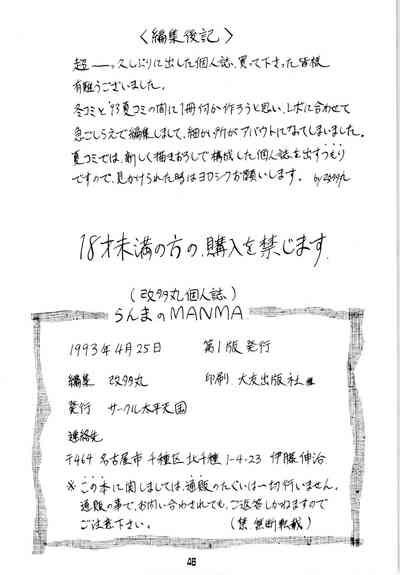 〈編集後記〉
超――っ久しぶりに出した個人誌、買って下さった皆様
有難うございました。
冬コミと'93夏コミの間に1冊何か作ろうと思い、レボに合わせて
急ごしらえで編集しまして、細かい所がアバウトになってしまいました。
夏コミでは、新しく描きおろしで構成した個人誌を出すつもり
ですので、見かけられた時はヨロシクお願いします。 by改多丸
18才未満の方の、購入を禁じます.
(改多丸個人誌)
らんまのMANMA
1993年4月25日 第1版発行
編集 改多丸 印刷 大友出版社
発行 サークル太平天国
連絡先
〒464 名古屋市千種区北千種1-4-23 伊藤伸治
※この本に関しましては、通販のたぐいは一切行いません。
通販の事で、お問い合わされても、ご返答しかねますので
ご注意下さい。 (禁 無断転載)
48